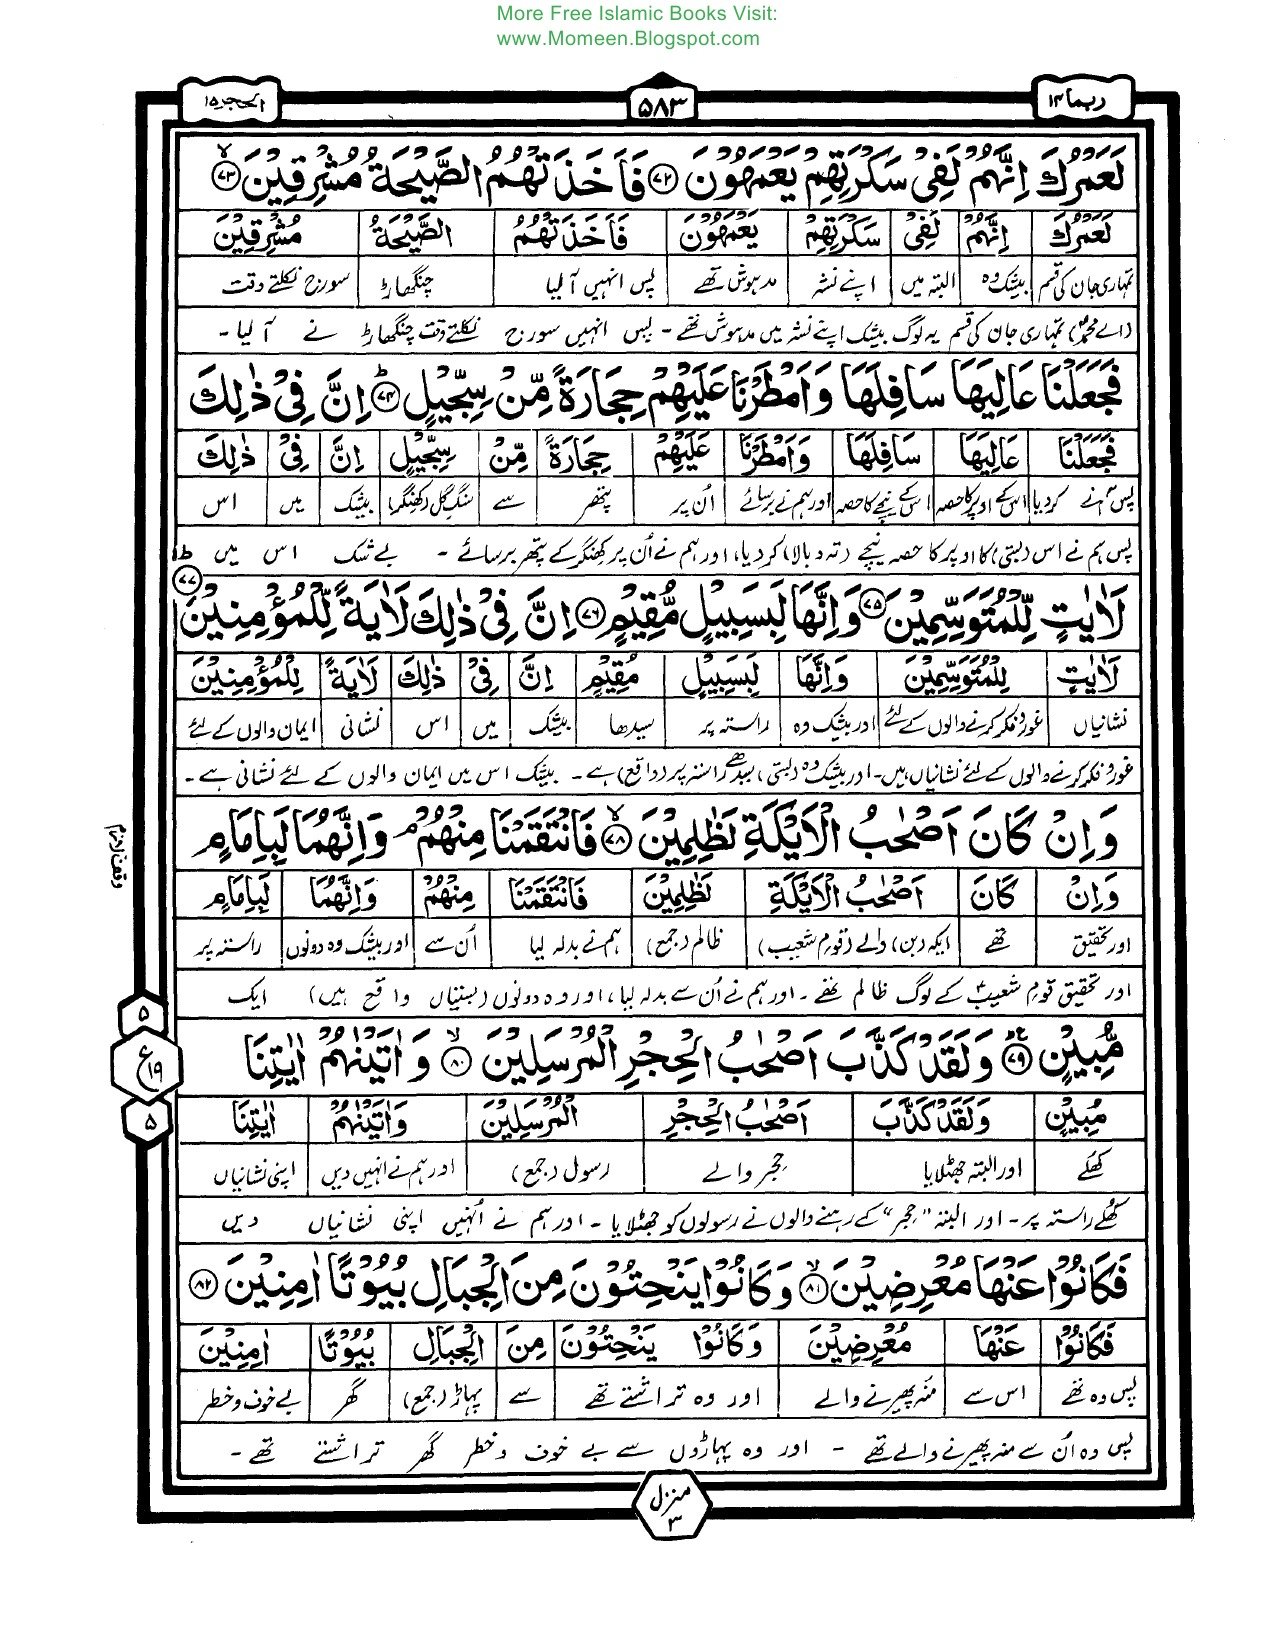 More Free Islamic Books Visit:
www.Momeen.Blogspot.com
ربما ١٤
۵۸۳
الحجر ١۵
لَعَمْرُكَ اِنَّهُمْ لَفِيْ سَكْرَتِهِمْ يَعْمَهُوْنَ ﴿۷۲﴾ فَاَخَذَتْهُمُ الصَّيْحَةُ مُشْرِقِيْنَ ﴿۷۳﴾
لَعَمْرُكَ اِنَّهُمْ لَفِيْ سَكْرَتِهِمْ يَعْمَهُوْنَ فَاَخَذَتْهُمُ الصَّيْحَةُ مُشْرِقِيْنَ
تمہاری جان کی قسم بیشک وہ البتہ میں اپنے نشہ مدہوش تھے پس انہیں آ لیا چنگھاڑ سورج نکلتے وقت
(اے محمدؐ) تمہاری جان کی قسم یہ لوگ بیشک اپنے نشہ میں مدہوش تھے ۔ پس انہیں سورج نکلتے وقت چنگھاڑ نے آ لیا ۔
فَجَعَلْنَا عَالِيَهَا سَافِلَهَا وَاَمْطَرْنَا عَلَيْهِمْ حِجَارَةً مِّنْ سِجِّيْلٍ ﴿۷۴﴾ اِنَّ فِيْ ذٰلِكَ
فَجَعَلْنَا عَالِيَهَا سَافِلَهَا وَاَمْطَرْنَا عَلَيْهِمْ حِجَارَةً مِّنْ سِجِّيْلٍ اِنَّ فِيْ ذٰلِكَ
پس ہم نے کردیا اس کے اوپر کا حصہ اس کے نیچے کا حصہ اور ہم نے برسائے اُن پر پتھر سے سنگِ گل (کھنگر) بیشک میں اس
پس ہم نے اس (بستی) کا اوپر کا حصہ نیچے (تہ و بالا) کر دیا، اور ہم نے اُن پر کھنگر کے پتھر برسائے ۔ بے شک اس میں
لَاٰيٰتٍ لِّلْمُتَوَسِّمِيْنَ ﴿۷۵﴾ وَاِنَّهَا لَبِسَبِيْلٍ مُّقِيْمٍ ﴿۷۶﴾ اِنَّ فِيْ ذٰلِكَ لَاٰيَةً لِّلْمُؤْمِنِيْنَ ﴿۷۷﴾
لَاٰيٰتٍ لِّلْمُتَوَسِّمِيْنَ وَاِنَّهَا لَبِسَبِيْلٍ مُّقِيْمٍ اِنَّ فِيْ ذٰلِكَ لَاٰيَةً لِّلْمُؤْمِنِيْنَ
نشانیاں غور و فکر کرنے والوں کے لئے اور بیشک وہ راستہ پر سیدھا بیشک میں اس نشانی ایمان والوں کے لئے
غور و فکر کرنے والوں کے لئے نشانیاں ہیں ۔ اور بیشک وہ (بستی) سیدھے راستہ پر (واقع) ہے ۔ بیشک اس میں ایمان والوں کے لئے نشانی ہے ۔
وَاِنْ كَانَ اَصْحٰبُ الْاَيْكَةِ لَظٰلِمِيْنَ ﴿۷۸﴾ فَانْتَقَمْنَا مِنْهُمْ ۘ وَاِنَّهُمَا لَبِاِمَامٍ
وقف لازم
وَاِنْ كَانَ اَصْحٰبُ الْاَيْكَةِ لَظٰلِمِيْنَ فَانْتَقَمْنَا مِنْهُمْ وَاِنَّهُمَا لَبِاِمَامٍ
اور تحقیق تھے ایکہ (بن) والے (قومِ شعیب) ظالم (جمع) ہم نے بدلہ لیا اُن سے اور بیشک وہ دونوں راستہ پر
اور تحقیق قومِ شعیبؑ کے لوگ ظالم تھے ۔ اور ہم نے اُن سے بدلہ لیا، اور وہ دونوں (بستیاں واقع ہیں) ایک
مُّبِيْنٍ ﴿۷۹﴾ وَلَقَدْ كَذَّبَ اَصْحٰبُ الْحِجْرِ الْمُرْسَلِيْنَ ﴿۸۰﴾ وَاٰتَيْنٰهُمْ اٰيٰتِنَا
۵
ع ۱۹
۵
مُبِيْنٍ وَلَقَدْ كَذَّبَ اَصْحٰبُ الْحِجْرِ الْمُرْسَلِيْنَ وَاٰتَيْنٰهُمْ اٰيٰتِنَا
کھلے اور البتہ جھٹلایا حجر والے رسول (جمع) اور ہم نے انہیں دیں اپنی نشانیاں
کھلے راستہ پر ۔ اور البتہ "حجر" کے رہنے والوں نے رسولوں کو جھٹلایا ۔ اور ہم نے اُنہیں اپنی نشانیاں دیں
فَكَانُوْا عَنْهَا مُعْرِضِيْنَ ﴿۸۱﴾ وَكَانُوْا يَنْحِتُوْنَ مِنَ الْجِبَالِ بُيُوْتًا اٰمِنِيْنَ ﴿۸۲﴾
فَكَانُوْا عَنْهَا مُعْرِضِيْنَ وَكَانُوْا يَنْحِتُوْنَ مِنَ الْجِبَالِ بُيُوْتًا اٰمِنِيْنَ
پس وہ تھے اس سے منہ پھیرنے والے اور وہ تراشتے تھے سے پہاڑ (جمع) گھر بے خوف و خطر
پس وہ اُن سے منہ پھیرنے والے تھے ۔ اور وہ پہاڑوں سے بے خوف و خطر گھر تراشتے تھے ۔
منزل ۳